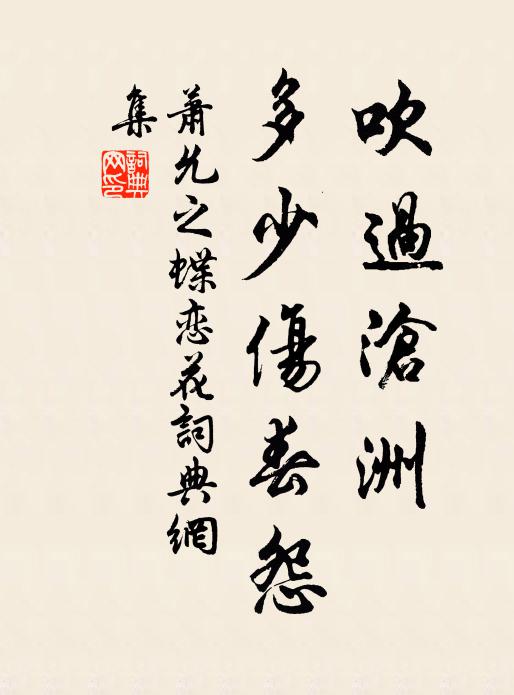 吹過滄洲
多少傷春怨
蕭允之蝶恋花詞典網
集
詞典網印